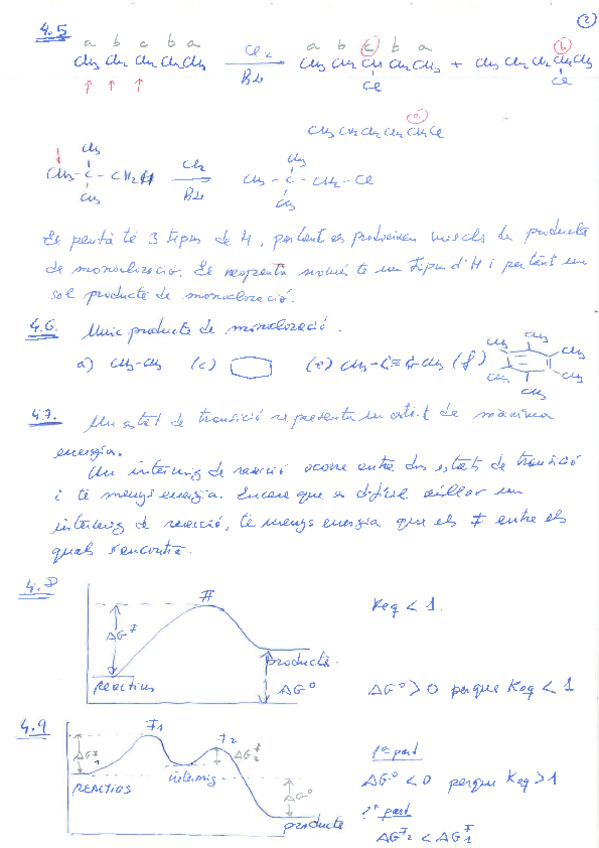 2
4.5
a b c b a a b c b a b
CH3 CH2 CH2 CH2 CH3 Cl2 CH3 CH2 CH CH2 CH3 + CH3 CH2 CH2 CH CH3
Cl Cl
a
CH3 CH2 CH2 CH2 CH2 Cl
CH3 CH3
CH3 - C - CH2H Cl2 CH3 - C - CH2 - Cl
CH3 CH3
El pentà té 3 tipus de H, per tant es produeixen mescla de producte
de monocloració. El neopentà només te un tipus d'H i per tant un
sol producte de monocloració.
4.6. Unic producte de monocloració.
a) CH3-CH3 (c) (e) CH3-C≡C-CH3 (f) CH3 CH3 CH3 CH3 CH3 CH3
4.7. Un estat de transició representa un estat de màxima
energia.
Un intermig de reacció ocorre entre dos estats de transició
i té menys energia. Encara que es difícil aïllar un
intermig de reacció, te menys energia que els ‡ entre els
quals s'encontra.
4.8
‡
Keq < 1.
ΔG‡
producte
reactius
ΔG°
ΔG° > 0 perque Keq < 1
4.9
‡1 ‡2
1ª part
ΔG‡1 intermig ΔG‡2
ΔG° < 0 perque Keq > 1
reactius
ΔG°
2ª part
producte
ΔG‡2 < ΔG‡1